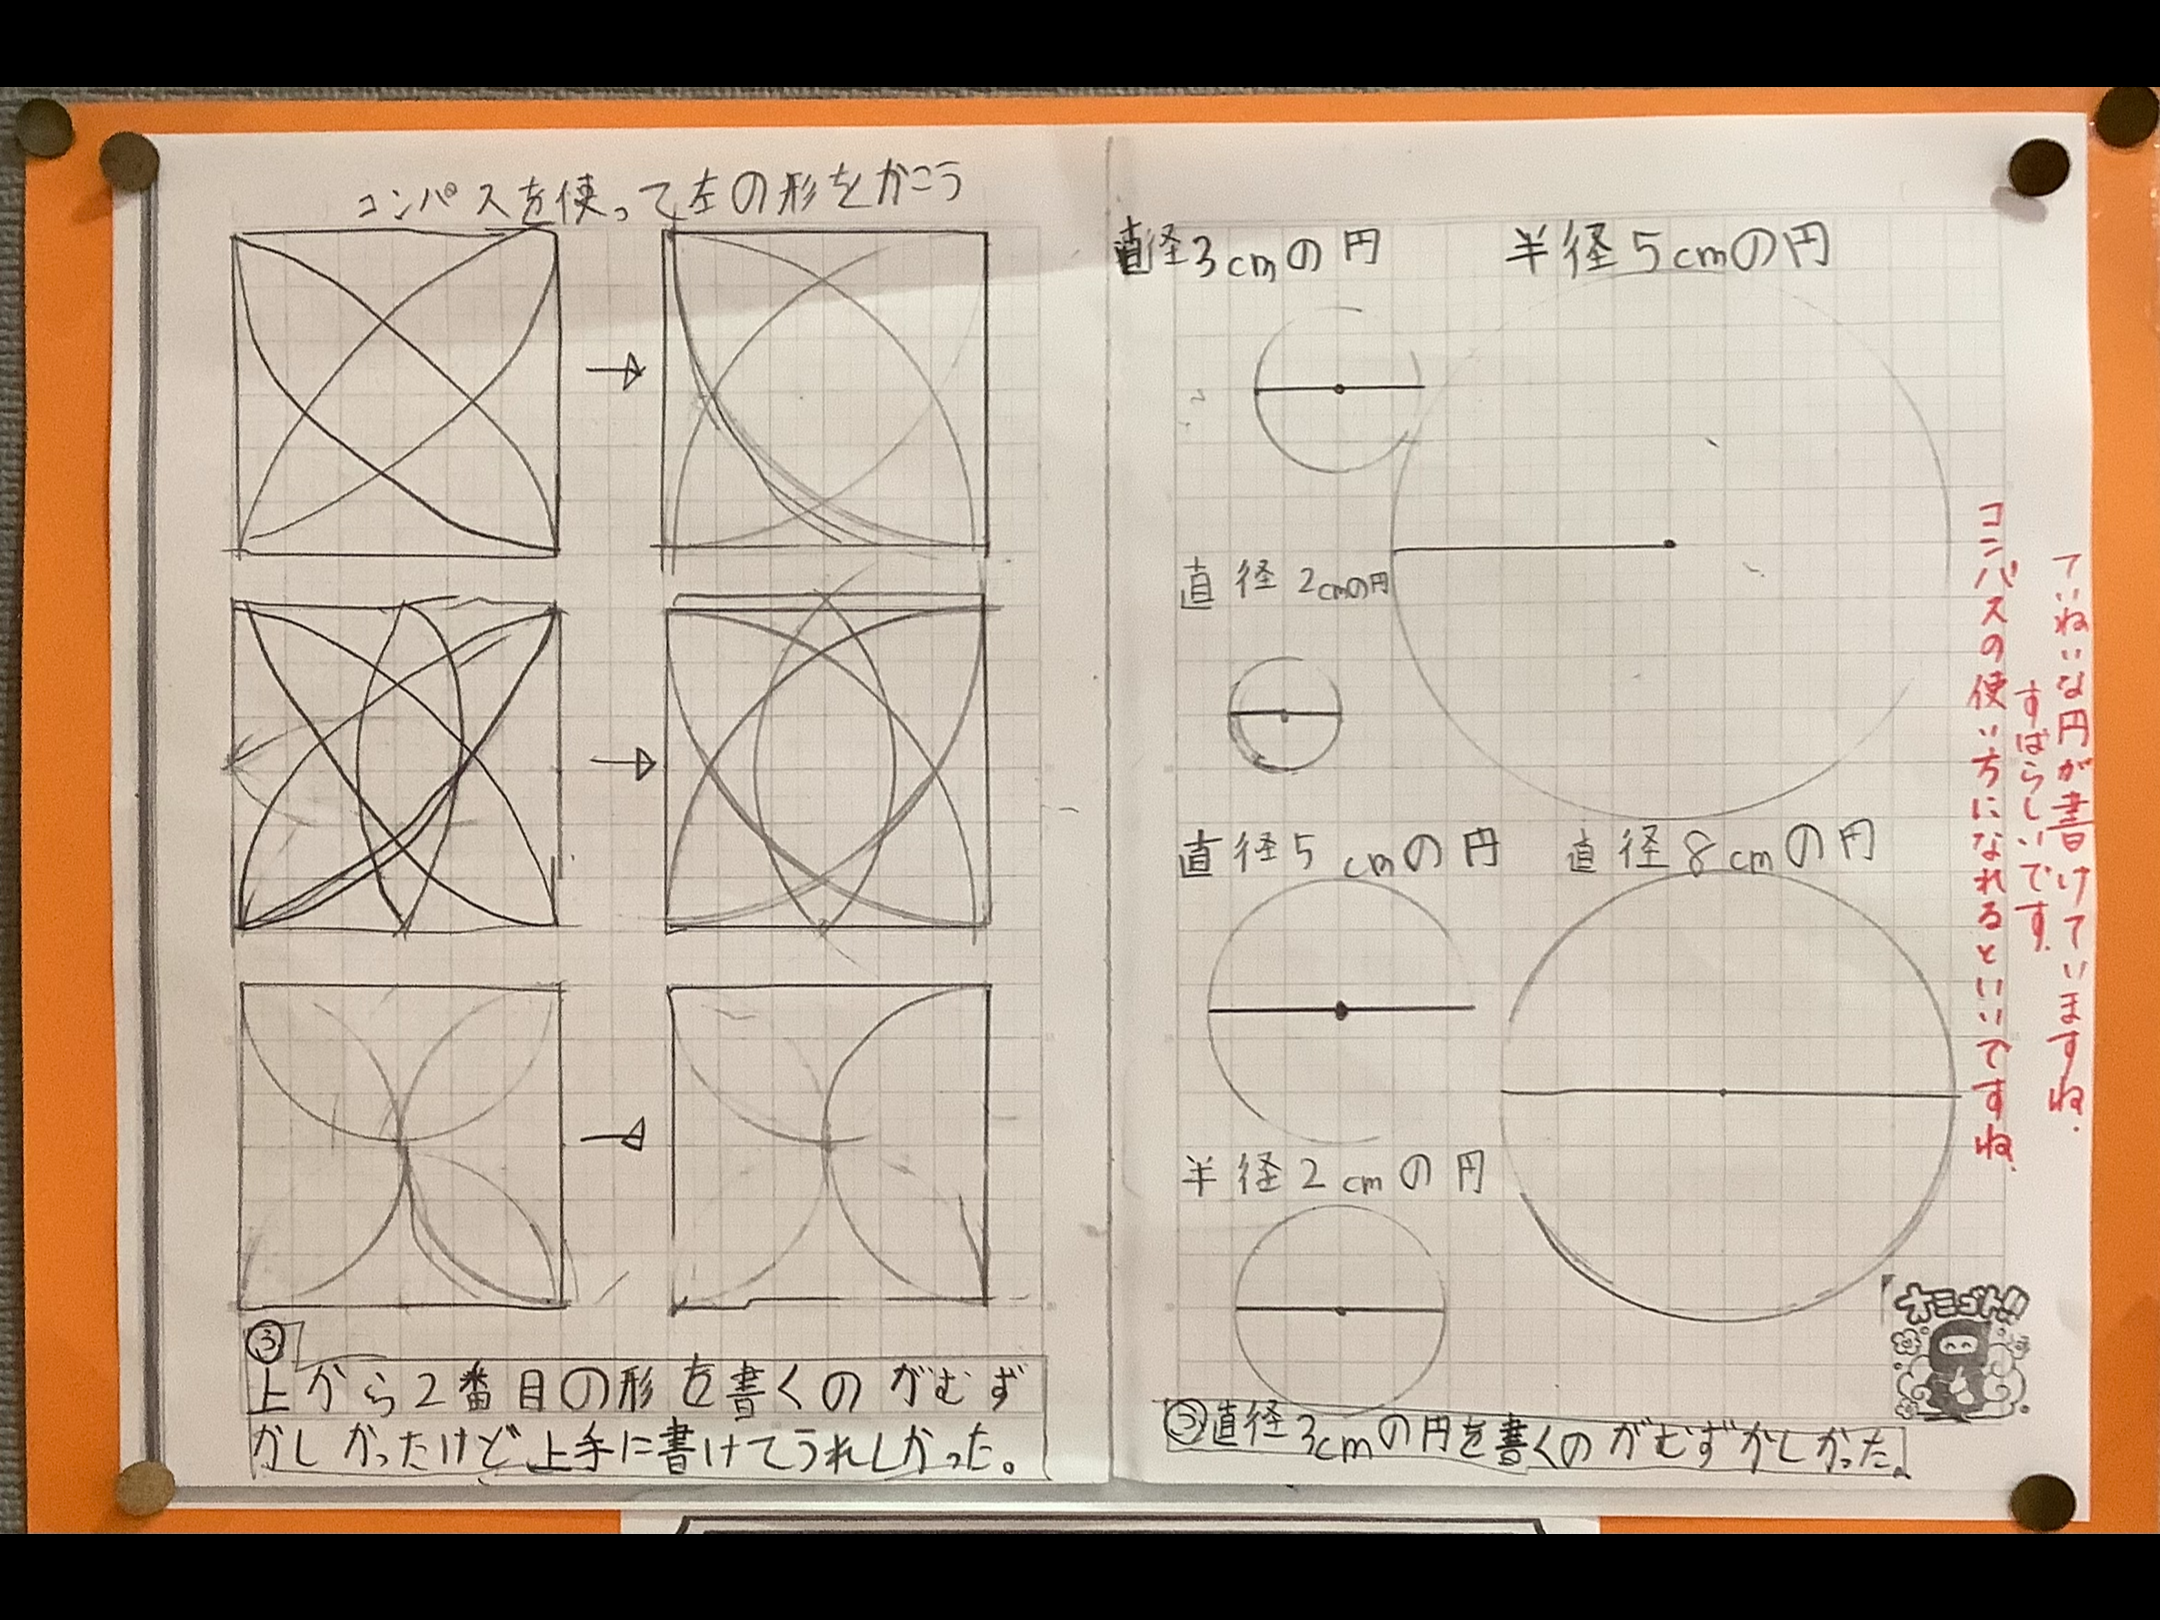 コンパスを使って左の形をかこう
③
上から2番目の形を書くのがむず
かしかったけど上手に書けてうれしかった。
直径3cmの円
半径5cmの円
直径2cmの円
直径5cmの円
直径8cmの円
半径2cmの円
③直径3cmの円を書くのがむずかしかった。
ていねいな円が書けていますね。
すばらしいです。
コンパスの使い方になれるといいですね。
オミゴト!!